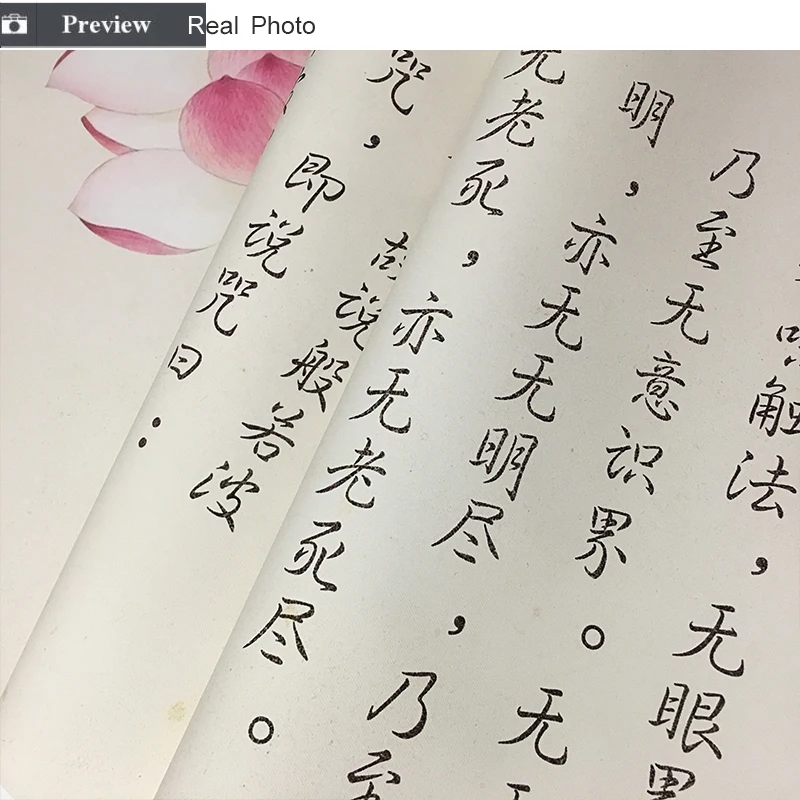 Preview
Real Photo
触法，无眼界
乃至无意识界。无
明，亦无无明尽，乃至
无老死，亦无老死尽。
说般若波
咒，即说咒曰：